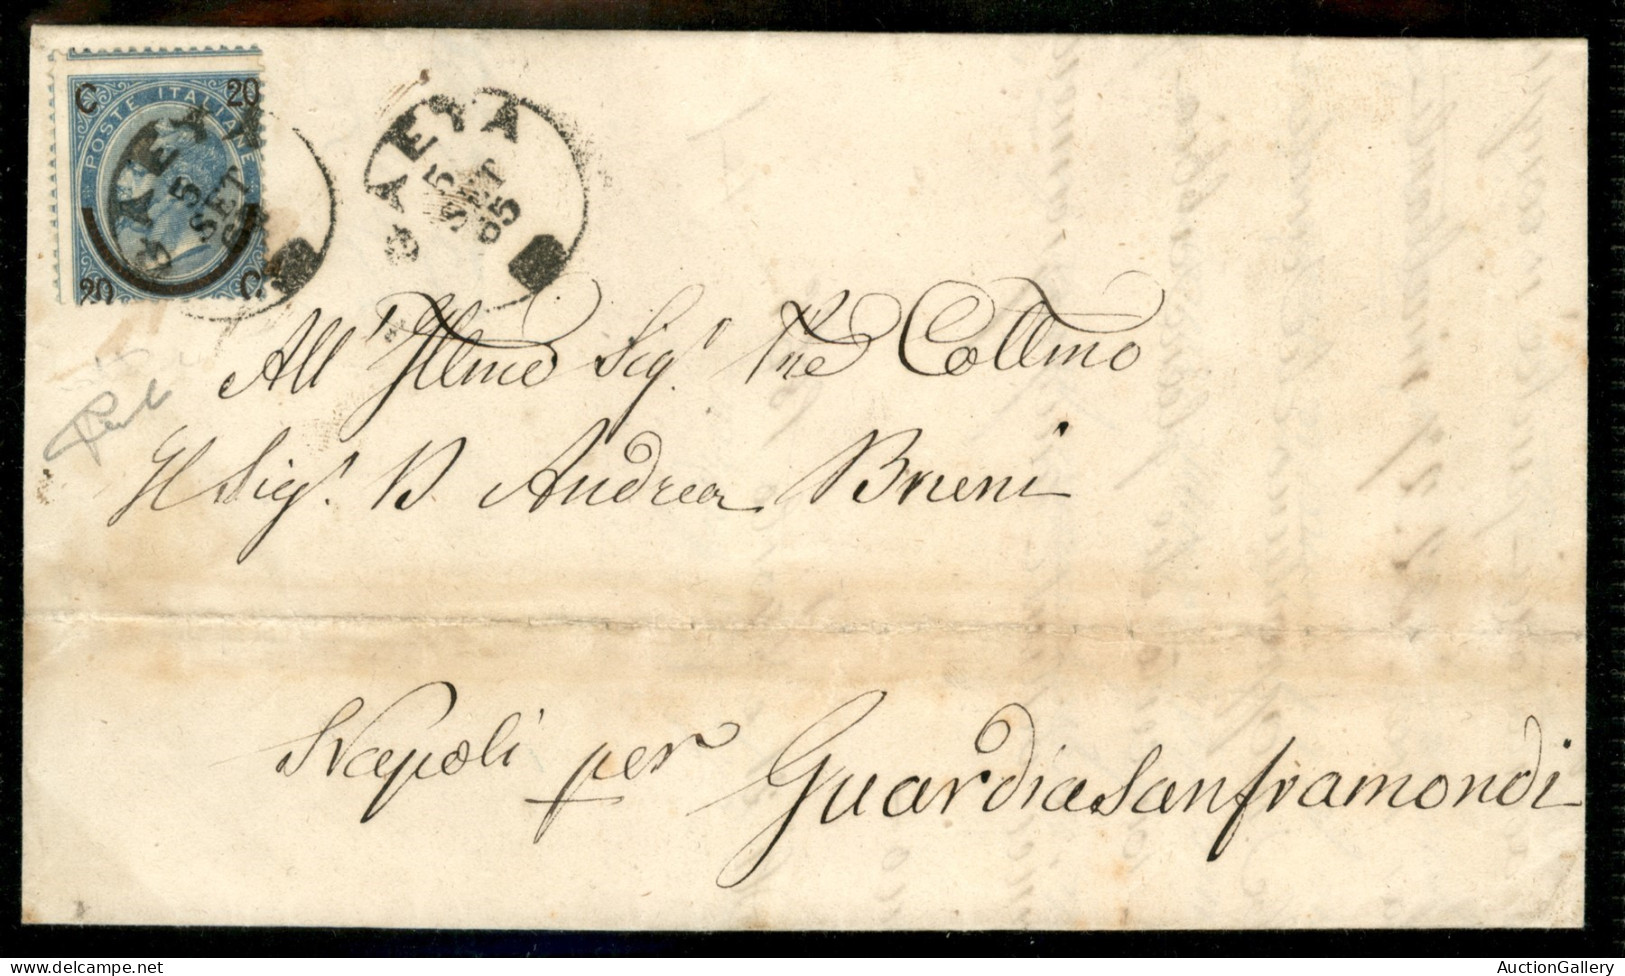 C 20
POSTE ITALIANE
20 C
GAETA
5
SET
65
GAETA
5
SET
65
All' Illmo Sig.r Pne Collmo
Il Sig.r D Andrea Bruni
Napoli per Guardiasanframondi
AuctionGallery